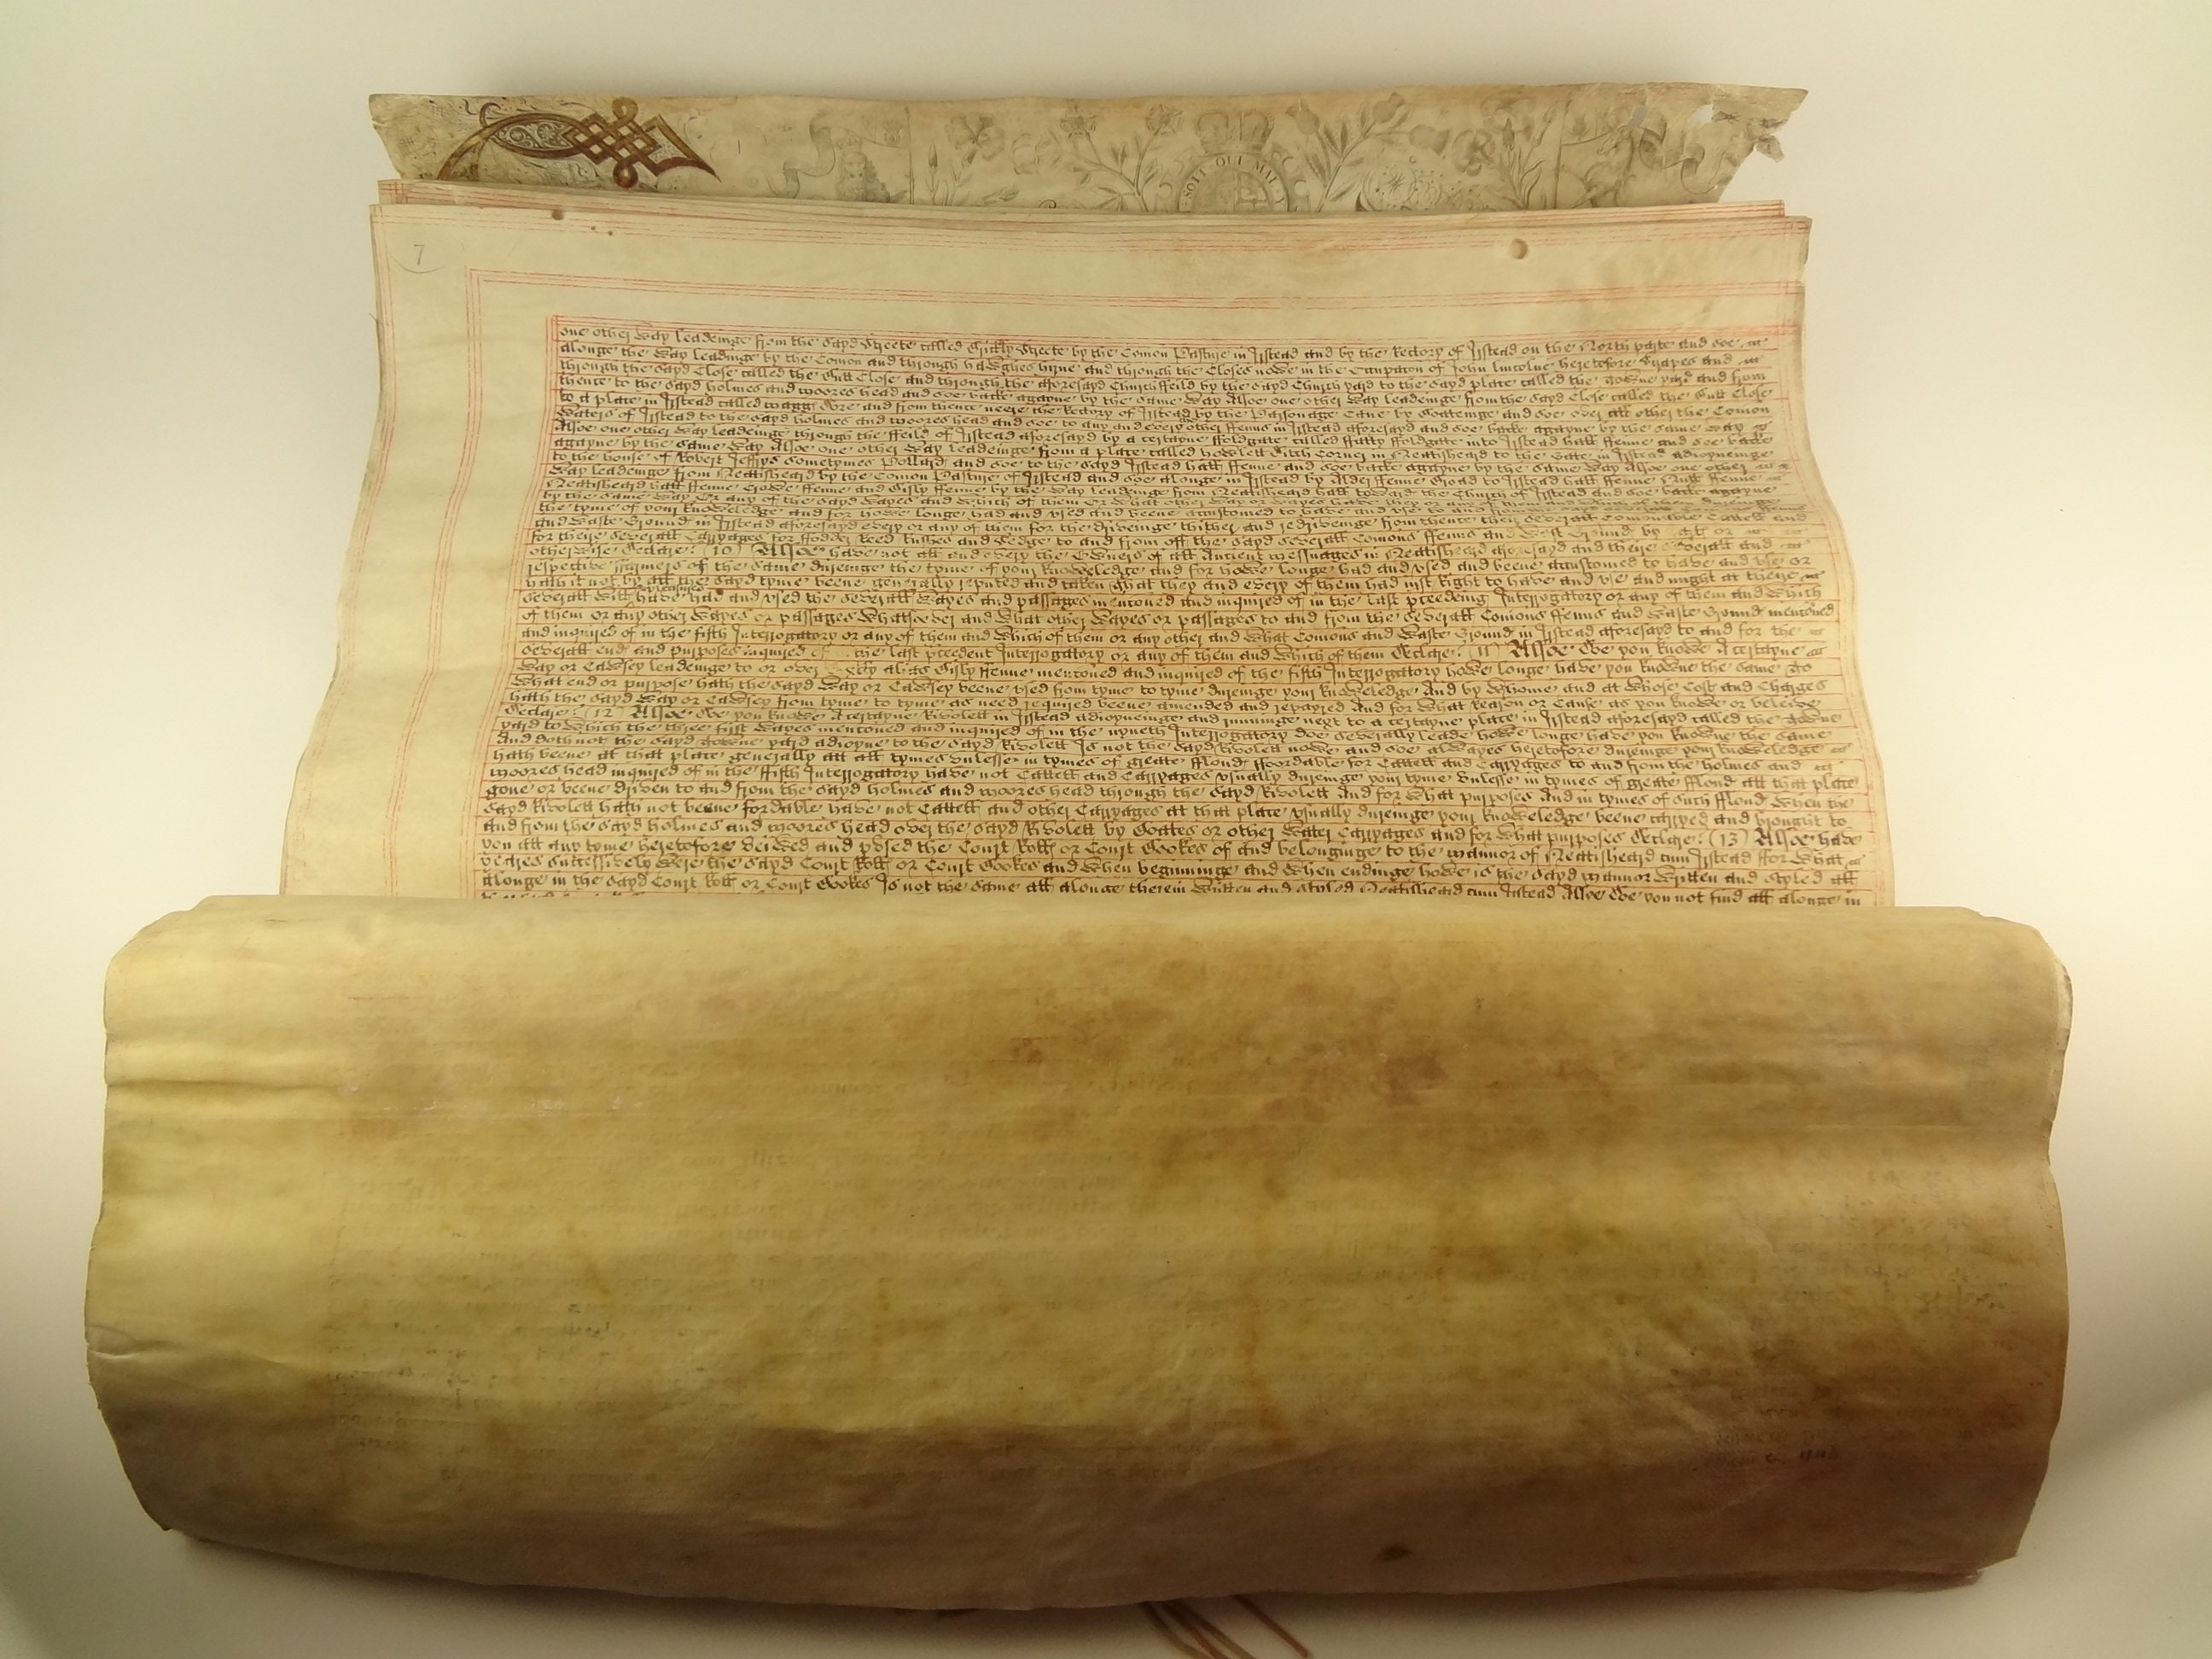 SOIT QUI MAL
7
one other way leadeinge from the sayd Streete called Streete by the Comon Pasture in Irstead and by the Rectory of Irstead on the North parte and soe
alonge the way leadinge by the Comon and through and through the Closes nowe in the of John Lincolne heretofore and
through the sayd Close called the Close and through the aforesayd Church ffeild by the sayd Church yard to the sayd place called the Towne yard and from
thence to the sayd holmes and moores head and soe backe agayne by the same way Alsoe one other way leadeinge from the sayd Close called the Close
to a place in Irstead called and from thence neere the Rectory of Irstead by the Parsonage Lane by Boateinge and soe over all other the Comon
waters of Irstead to the sayd holmes and moores head and soe to any and every other ffenns in Irstead aforesayd and soe backe agayne by the same way
Alsoe one other way leadeinge through the ffeild of Irstead aforesayd by a certayne ffoldgate called ffoldgate into Irstead hall ffenne and soe backe
agayne by the same way Alsoe one other way leadeinge from a place called howlett Ditch Corner in Neatisheard to the Gate in Irstead adioyneinge
to the house of Robert Jeffrys sometymes Pollard and soe to the sayd Irstead hall ffenne and soe backe agayne by the same way Alsoe one other
way leadeinge from Neatisheard by the Comon Pasture of Irstead and soe alonge in Irstead by Alder ffenne Broad to Irstead hall ffenne ffenne
Neatisheard hall ffenne Crowe ffenne and Gisly ffenne by the way leadeinge from Neatisheard hall toward the Church of Irstead and soe backe agayne
by the same way Or any of the sayd wayes and which of them Or what other way or wayes have they or any of them
the tyme of your knowledge and for howe longe had and vsed and beene accustomed to have and vse to and from
and waste Ground in Irstead aforesayd every or any of them for the driveinge thither and redriveinge from thence their severall Comonable Cattell and
for theire severall Carryages for ffodder Reed bushes and Sedge to and from off the sayd severall Comons ffenns and Ground by or
otherwise Declare: (10) Alsoe have not all and every the Owners of all Ancient messuages in Neatisheard aforesayd and theire severall and
respective ffarmers of the same dureinge the tyme of your knowledge and for howe longe had and vsed and beene accustomed to have and vse or
hath it not by all the sayd tyme beene generally reputed and taken that they and every of them had iust Right to have and vse and might at theire
severall will and pleasures have had and vsed the severall wayes and passages mentoned and inquired of in the last preceeding Interrogatory or any of them and which
of them or any other wayes or passages whatsoever and what other wayes or passages to and from the severall Comons ffenns and waste Ground mentoned
and inquired of in the fifth Interrogatory or any of them and which of them or any other and what Comons and waste Ground in Irstead aforesayd to and for the
severall ends and purposes inquired of the last precedent Interrogatory or any of them and which of them Declare: (11) Alsoe Doe you knowe A certayne
way or Cawsey leadeinge to or over alias Gisly ffenne mentoned and inquired of the fifth Interrogatory howe longe have you knowne the same To
what end or purpose hath the sayd way or Cawsey beene vsed from tyme to tyme dureinge your knowledge And by whome and at whose Cost and Charges
hath the sayd way or Cawsey from tyme to tyme as need required beene amended and repayred And for what Reason or Cause as you knowe or beleive
Declare: (12) Alsoe Doe you knowe A certayne Rivolett in Irstead adioyneinge and runninge next to a certayne place in Irstead aforesayd called the Towne
yard to which the three first wayes mentoned and inquired of in the nyneth Interrogatory doe severally leade howe longe have you knowne the same
And doth not the sayd Towne yard adioyne to the sayd Rivolett Is not the sayd Rivolett nowe and soe alwayes heretofore dureinge your knowledge
hath beene at that place generally att all tymes vnlesse in tymes of greate fflood ffoordable for Cattell and Carryages to and from the holmes and
moores head inquired of in the ffifth Interrogatory have not Cattell and Carryages vsually dureinge your tyme vnlesse in tymes of greate fflood att that place
gone or beene driven to and from the sayd holmes and moores head through the sayd Rivolett And for what purposes And in tymes of such fflood when the
sayd Rivolett hath not beene fordable have not Cattell and other Carryages at that place vsually dureinge your knowledge beene carryed and brought to
and from the sayd holmes and moores head over the sayd Rivolett by Boates or other water Carryages and for what purposes Declare: (13) Alsoe have
you att any tyme heretofore veiwed and pvsed the Court Rolls or Court Bookes of and belonginge to the mannor of Neatisheard cum Irstead ffor what
yeares successively were the sayd Court Rolls or Court Bookes and when beginninge and when endinge howe is the sayd mannor written and styled all
alonge in the sayd Court Rolls or Court Bookes Is not the same all alonge therein written and styled Neatisheard cum Irstead Alsoe Doe you not find all alonge in